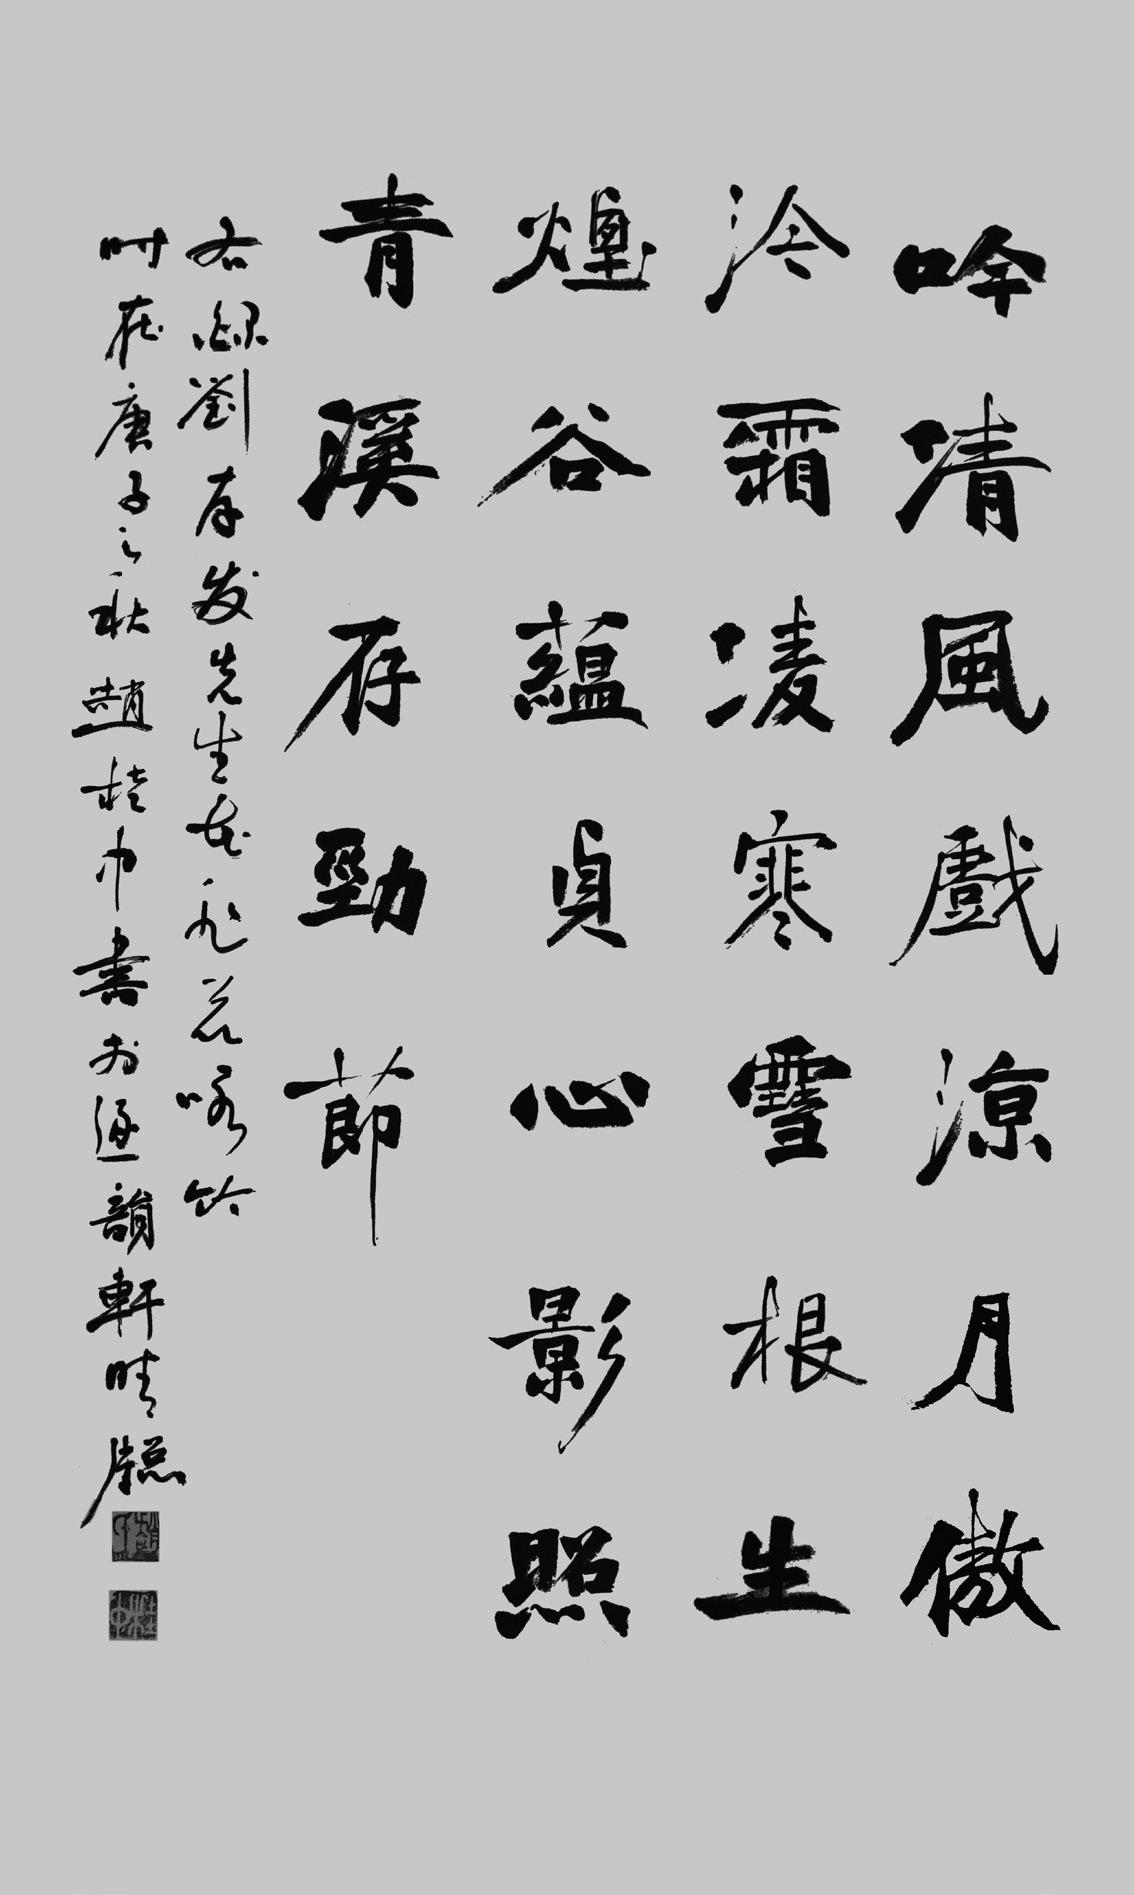 吟清風戲涼月傲
泠霜凌寒雪根生
煙谷蘊貞心影照
青溪存勁節
右録劉存发先生飛花咏竹
时在庚子之秋趙桂中書於逸韻軒晴牕